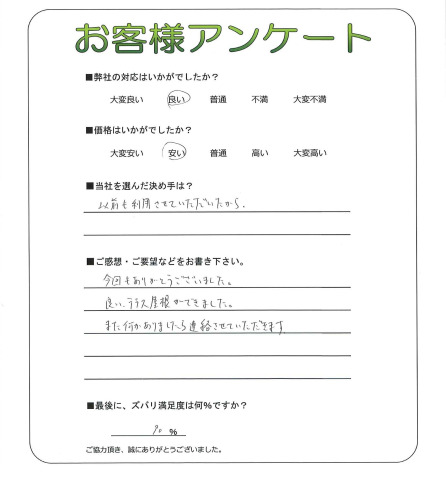 お客様アンケート
■弊社の対応はいかがでしたか？
大変良い 良い 普通 不満 大変不満
■価格はいかがでしたか？
大変安い 安い 普通 高い 大変高い
■当社を選んだ決め手は？
以前も利用させていただいたから、
■ご感想・ご要望などをお書き下さい。
今回もありがとうございました。
良い、テラス屋根ができました。
また何かありましたら連絡させていただきます
■最後に、ズバリ満足度は何％ですか？
90 %
ご協力頂き、誠にありがとうございました。